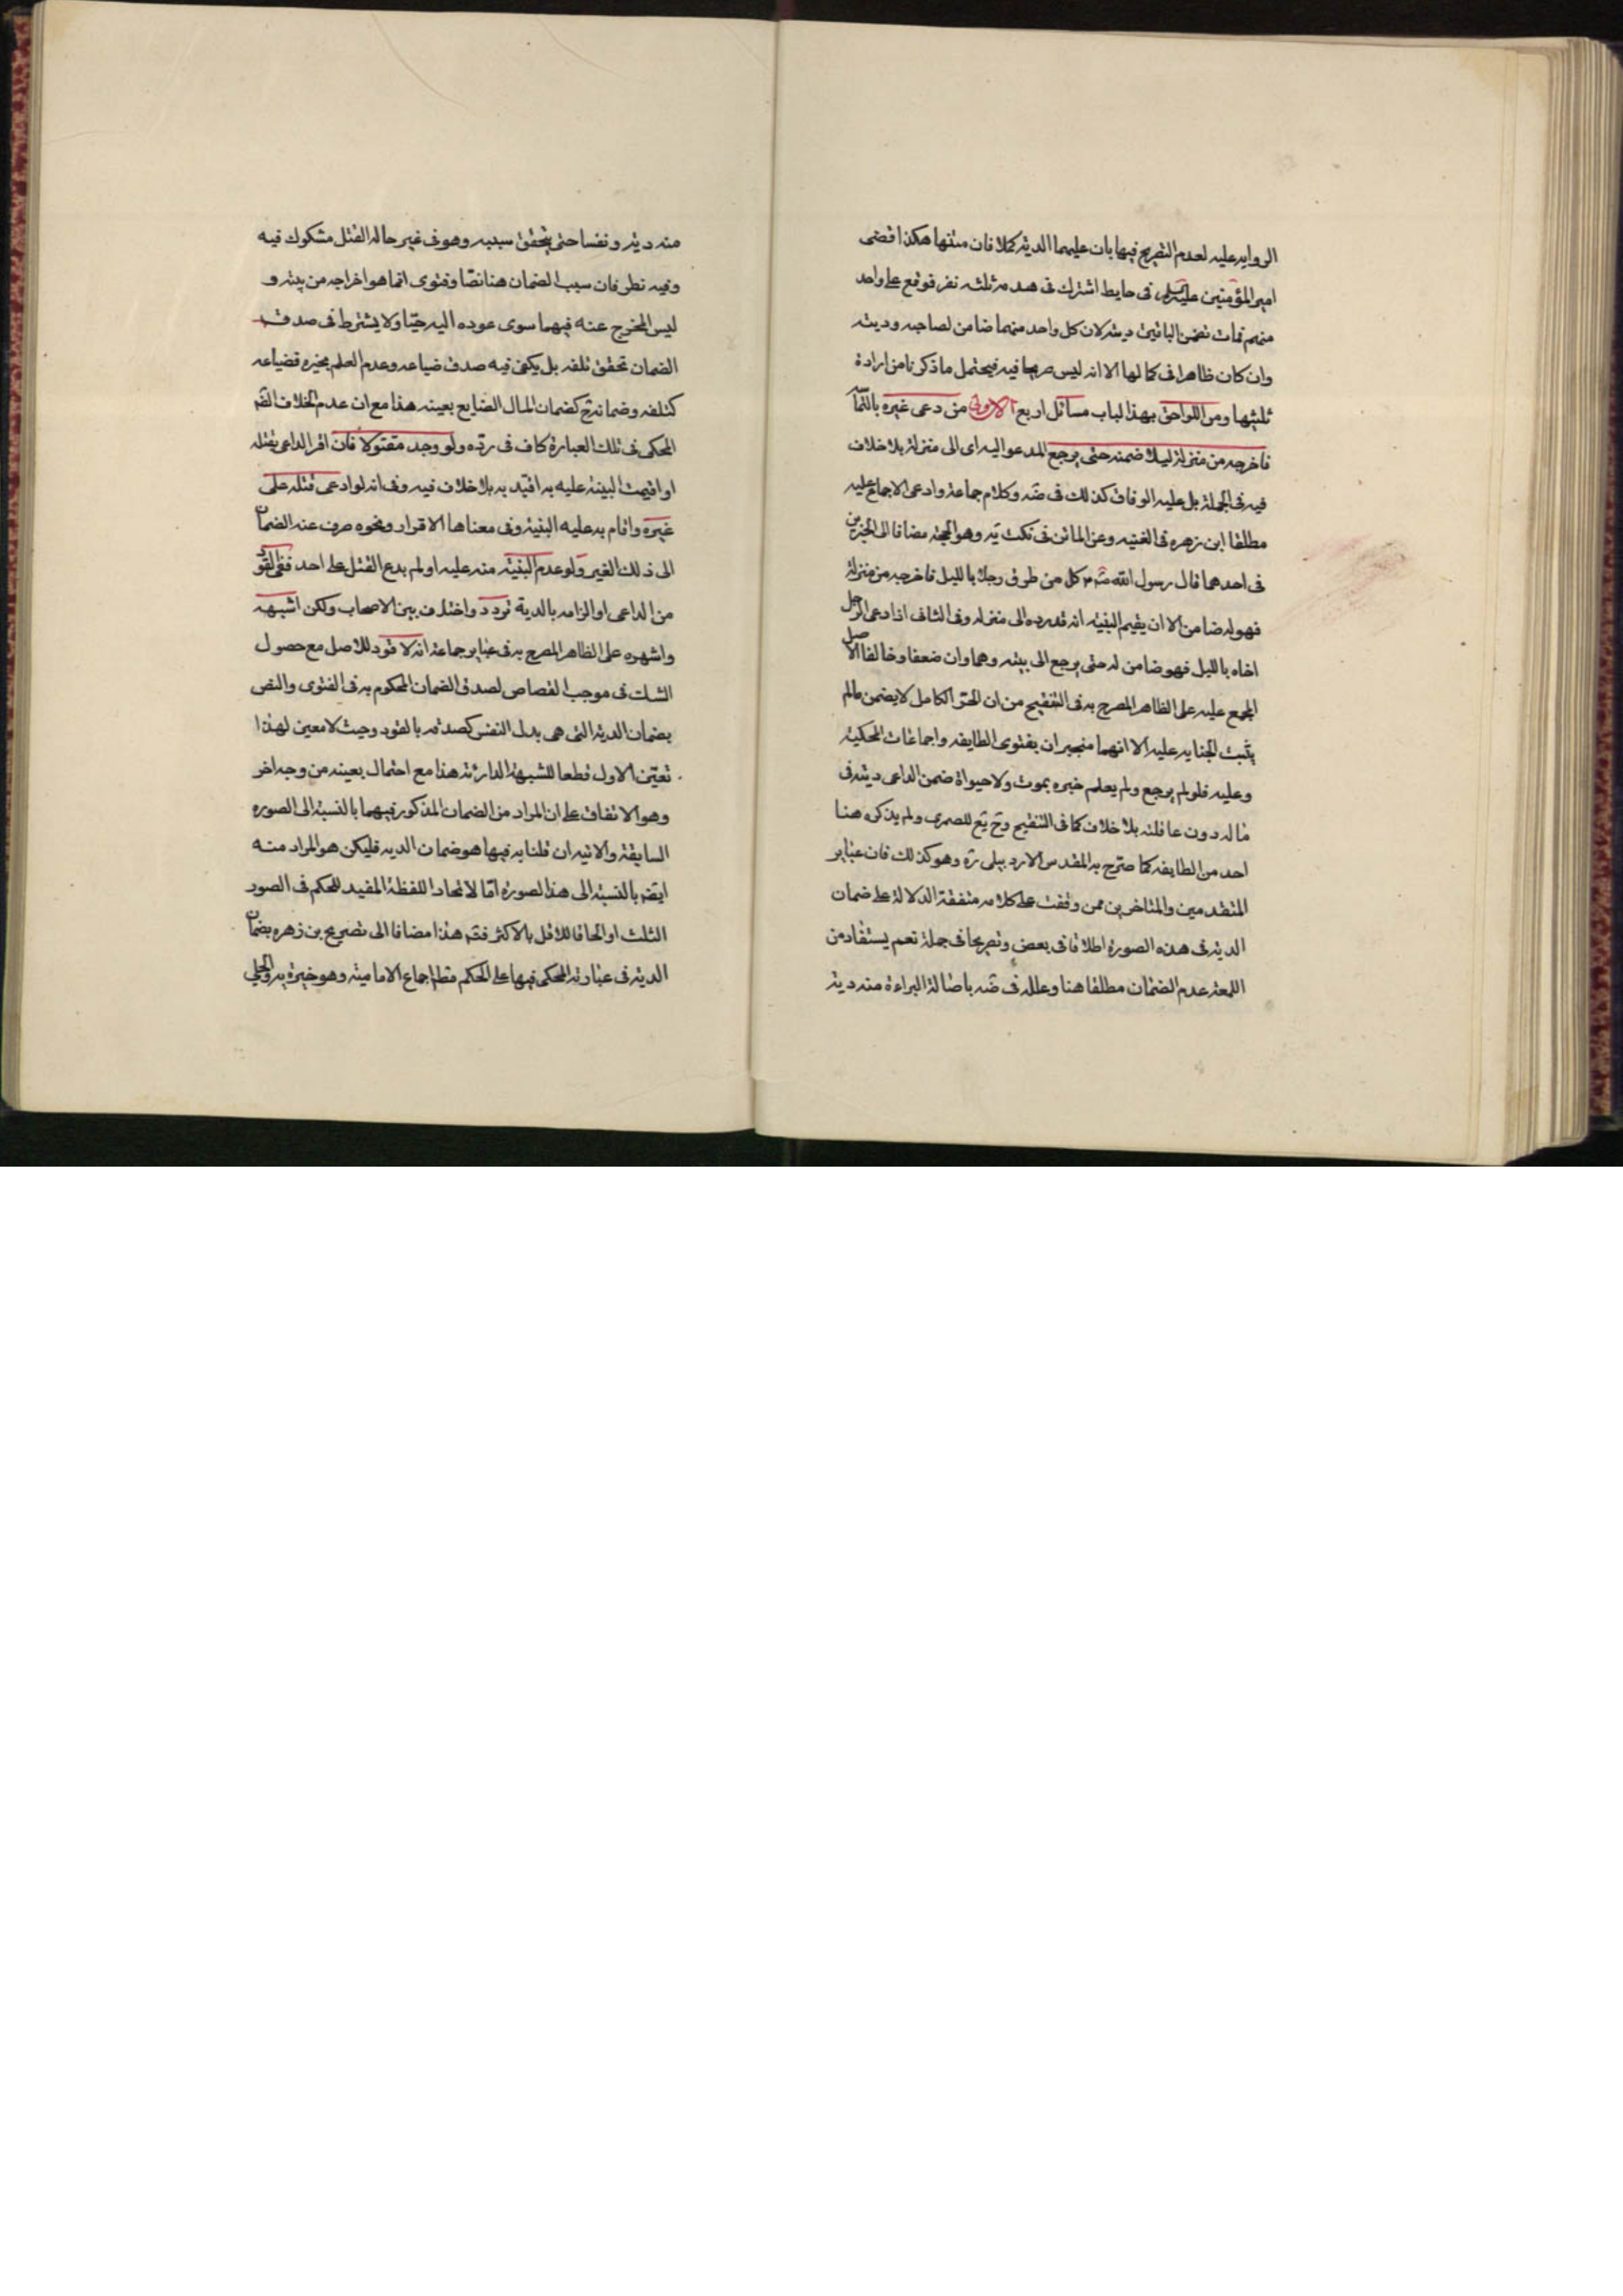 الروايه عليه لعدم التصريح فيها بان عليهما الديه كملا فان متنها هكذا قضى
امير المؤمنين عليه السلم فى حايط اشترك فى هدمه ثلثه نفر فوقع على واحد
منهم فمات فضمن الباقين ديته لان كل واحد منهما ضامن لصاحبه وديته
وان كان ظاهرا فى كمالها الا انه ليس صريحا فيه فيحتمل ما ذكرنا من ارادة
ثلثيها ومن اللواحق بهذا لباب مسائل اربع الاولى من دعى غيره
فاخرجه من منزله ليلا ضمنه حتى يرجع المدعو اليه اى الى منزله بلا خلاف
فيه فى الجملة بل عليه الوفاق كذلك فى ضه وكلام جماعة وادعى الاجماع عليه
مطلقا ابن زهره فى الغنيه وعن الماتن فى نكت يه وهو الحجة مضافا الى الخبرين
فى احدهما قال رسول الله صم كل من طرق رجلا بالليل فاخرجه من منزله
فهو له ضامن الا ان يقيم البينه انه قد رده الى منزله وفى الثانى اذا دعى الرجل
اخاه بالليل فهو ضامن له حتى يرجع الى بيته وهما وان ضعفا وخالفا الاصل
المجمع عليه على الظاهر المصرح به فى التنقيح من ان الحر الكامل لا يضمن مالم
يثبت الجنايه عليه الا انهما منجبران بفتوى الطايفه واجماعات المحكية
وعليه فلو لم يرجع ولم يعلم خبره بموت ولا حيوة ضمن الداعى ديته فى
ماله دون عاقلته بلا خلاف كما فى التنقيح وتح يع للصمرى ولم يذكره هنا
احد من الطايفه كما صرح به المقدس الاردبيلى ره وهو كذلك فان عباير
المتقدمين والمتاخرين ممن وقفت على كلامه متفقة الدلالة على ضمان
الديه فى هذه الصورة اطلاقا فى بعض وتصريحا فى جملة نعم يستفاد من
اللمعة عدم الضمان مطلقا هنا وعلله فى ضه باصالة البراءة منه دية
منه دية ونفسا حتى يتحقق سببه وهو فى غير حاله القتل مشكوك فيه
وفيه نظر فان سبب الضمان هنا نصا وفتوى انما هو اخراجه من بيته و
ليس المخرج عنه فيهما سوى عوده اليه حيا ولا يشترط فى صدق
الضمان تحقق تلفه بل يكفى فيه صدق ضياعه وعدم العلم بخبره فضياعه
كتلفه وضمانه ح كضمان المال الضايع بعينه هذا مع ان عدم الخلاف
المحكى فى تلك العبارة كاف فى رده ولو وجد مقتولا فان اقر الداعى بقتله
او اقيمت البينة عليه به اقيد به بلا خلاف فيه وفى انه لو ادعى قتله على
غيره واقام به عليه البنية وفى معناها الاقرار ونحوه صرف عنه الضمان
الى ذلك الغير ولو عدم البنية منه عليه او لم يدع القتل على احد ففى القود
من الداعى او الزامه بالدية تردد واختلاف بين الاصحاب ولكن اشبهه
واشهره على الظاهر المصرح به فى عباير جماعة انه لا قود للاصل مع حصول
الشك فى موجب القصاص لصدق الضمان المحكوم به فى الفتوى والنص
بضمان الدية التى هى بدل النفس كصدقه بالقود وحيث لا معين لهذا
تعين الاول قطعا للشبهة الدارئة هذا مع احتمال بعينه من وجه اخر
وهو الاتفاق على ان المراد من الضمان المذكور فيهما بالنسبة الى الصوره
السابقة والاتيه ان قلنا به فيها هو ضمان الديه فليكن هو المراد منه
ايضا بالنسبة الى هذا الصورة اما لاتحاد اللفظة المفيد للحكم فى الصور
الثلث او الحاقا للاقل بالاكثر هذا مضافا الى تصريح بن زهره بضمان
الدية فى عبارته المحكى فيها على الحكم اجماع الامامية وهو خيرة يه والحلى